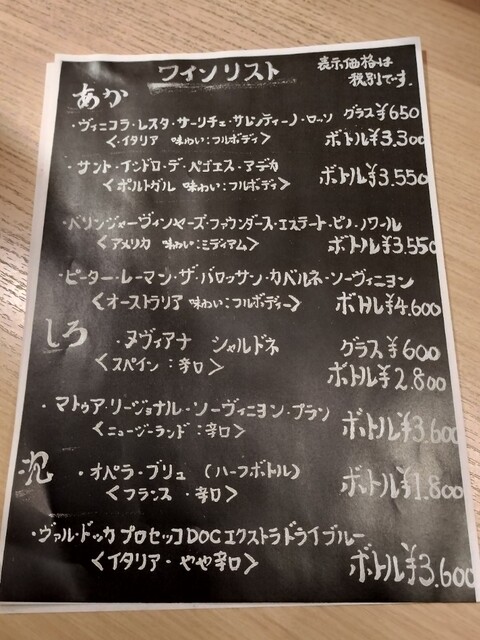 ワインリスト
表示価格は
税別です。
あか
・ヴィニコラ・レスタ・サーリチェ・サレンティーノ・ロッソ グラス¥650
<イタリア 味わい:フルボディ> ボトル¥3,300
・サント・イシドロ・デ・ペゴエス・アデカ ボトル¥3,550
<ポルトガル 味わい:フルボディ>
・ベリンジャーヴィンヤーズ・ファウンダース・エステート・ピノ・ノワール
<アメリカ 味わい:ミディアム> ボトル¥3,550
・ピーター・レーマン・ザ・バロッサン・カベルネ・ソーヴィニヨン
<オーストラリア 味わい:フルボディー> ボトル¥4,600
しろ
・ヌヴィアナ シャルドネ グラス¥600
<スペイン:辛口> ボトル¥2,800
・マトゥア・リージョナル・ソーヴィニヨン・ブラン ボトル¥3,600
<ニュージーランド:辛口>
泡
・オペラ・ブリュ (ハーフボトル) ボトル¥1,800
<フランス・辛口>
・ヴァル・ドッカ プロセッコDOCエクストラドライブルー
<イタリア・やや辛口> ボトル¥3,600